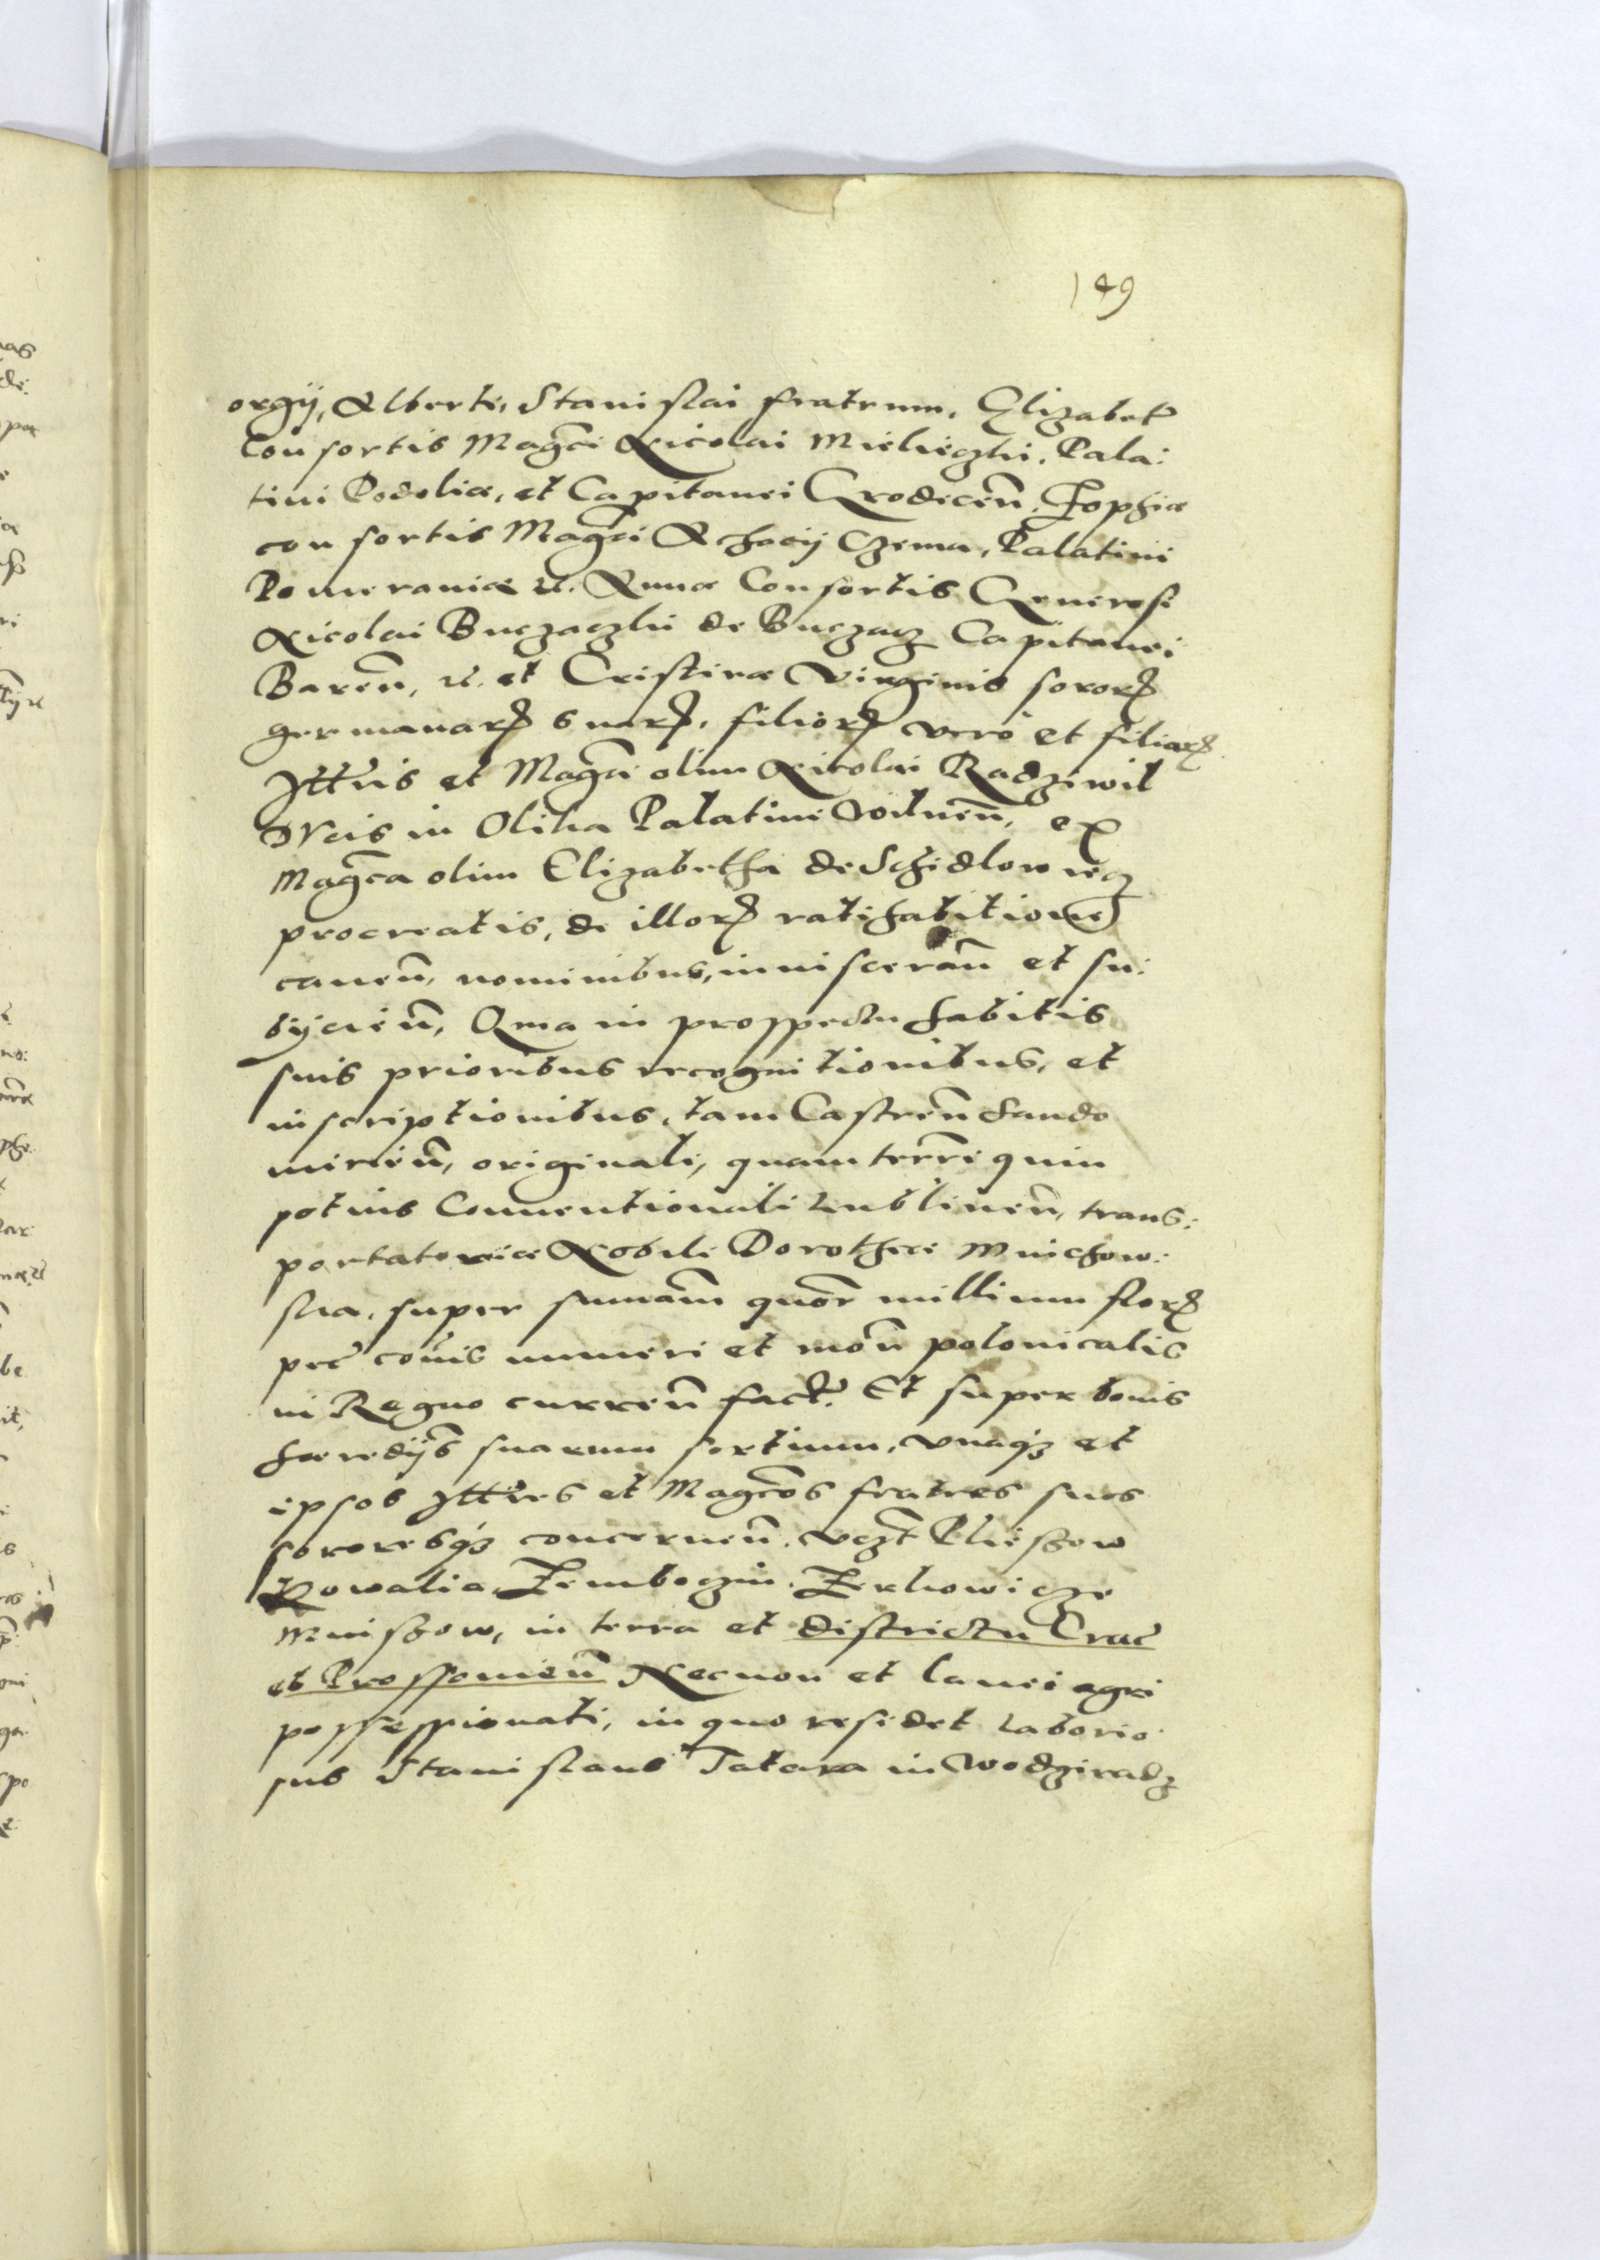 149
orgij, Alberti, Stanislai fratrum, Elizabet
Consortis Magci Nicolai Mielieczki, Pala:
tini Podoliæ, et Capitanei Grodecen, Zophiæ
consortis Magci Achacij Czema, Palatini
Pomeraniæ etc. Annæ Consortis Generosi
Nicolai Buczaczki de Buczacz Capitanei
Baren, etc. et Cristinæ Virginis soror
germanar suar, filior vero et filiar
Illris et Magci olim Nicolai Radziwil
Ducis in Olika Palatini Vilnen, ex
Magca olim Elizabetha de Schidlowiecz
procreatis, de illor ratihabitione
caven, nominibus, invisceran et su:
bijcien, Qma in prospectu habitis
suis prioribus recognitionibus, et
inscriptionibus, tam Castren Sando
mirien, originali, quam terri quin
potius Conventionali Lublinen, trans:
portatoria Nobili Dorotheæ Mnichow:
ska, super summam quor millium flor
pec cois numeri et mon polonicalis
in Regno curren fact. Et super bonis
hæredijs suarum sortium, unaqz et
ipsos Illres et Magcos fratres suos
sororesqz concernen, vczt Plieszow
Kowalia, Zemboczin, Zerkowicze
Mniszow, in terra et districtu Crac
et Prossovien Necnon et lanei agri
possessionati, in quo residet laborio
sus Stanislaus Tatara in Wodzieradz